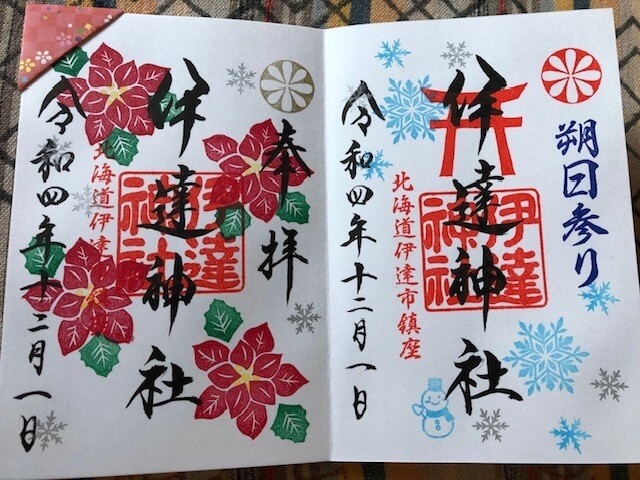 朔日参り
伊達神社
伊達神社
北海道伊達市鎮座
令和四年十二月一日
奉拝
伊達神社
伊達神社
北海道伊達
令和四年十二月一日